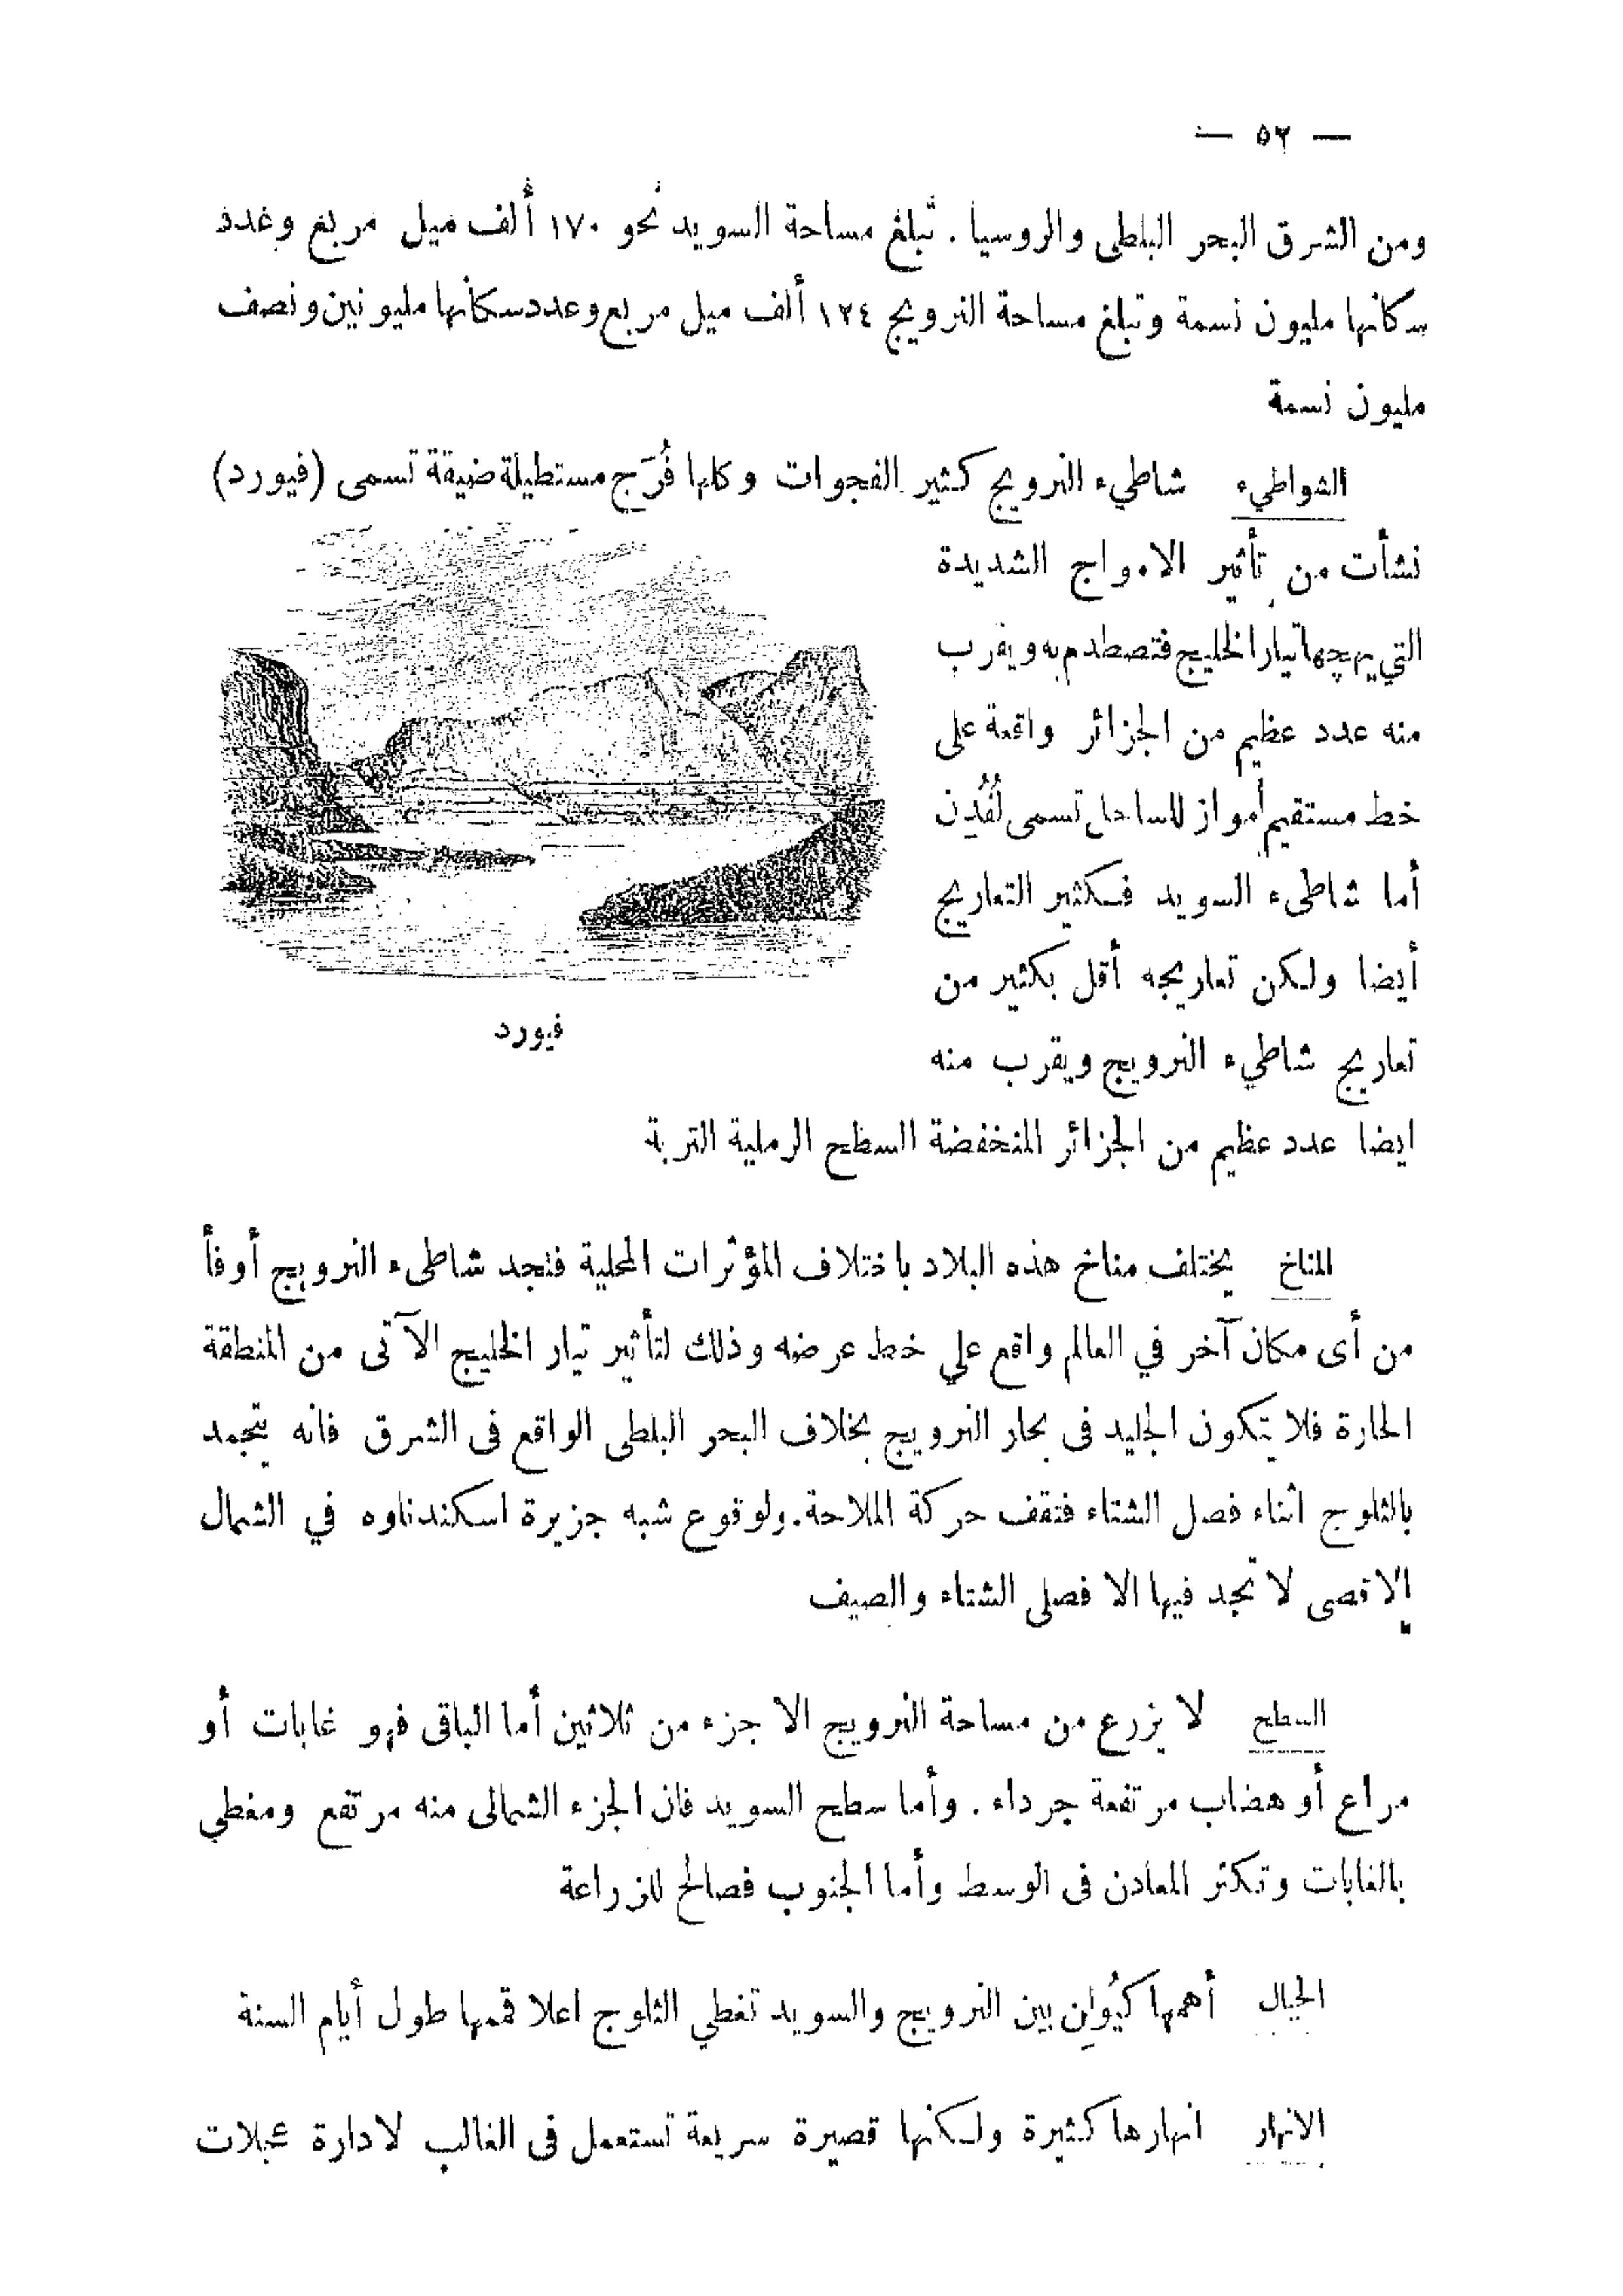 — ٥٢ —
ومن الشرق البحر البلطى والروسيا. تبلغ مساحة السويد نحو ١٧٠ ألف ميل مربع وعدد
سكانها مليون نسمة وتبلغ مساحة النرويج ١٢٤ ألف ميل مربع وعدد سكانها مليونين ونصف
مليون نسمة
الشواطيء شاطيء النرويج كثير الفجوات وكلها فُرَج مستطيلة ضيقة تسمى (فيورد)
نشأت من تأثير الامواج الشديدة
التي يهيجها تيار الخليج فتصطدم به ويقرب
منه عدد عظيم من الجزائر واقعة على
خط مستقيم مواز للساحل تسمى لُفُدِن
أما شاطىء السويد فكثير التعاريج
أيضا ولكن تعاريجه أقل بكثير من
تعاريج شاطيء النرويج ويقرب منه
ايضا عدد عظيم من الجزائر المنخفضة السطح الرملية التربة
فيورد
المناخ يختلف مناخ هذه البلاد باختلاف المؤثرات المحلية فنجد شاطىء النرويج أوفأ
من أى مكان آخر في العالم واقع علي خط عرضه وذلك لتأثير تيار الخليج الآتى من المنطقة
الحارة فلا يتكون الجليد فى بحار النرويج بخلاف البحر البلطى الواقع فى الشرق فانه يتجمد
بالثلوج اثناء فصل الشتاء فتقف حركة الملاحة. ولوقوع شبه جزيرة اسكندناوه في الشمال
الاقصى لا تجد فيها الا فصلى الشتاء والصيف
السطح لا يزرع من مساحة النرويج الا جزء من ثلاثين أما الباقى فهو غابات أو
مراع أو هضاب مرتفعة جرداء. وأما سطح السويد فان الجزء الشمالى منه مرتفع ومغطي
بالغابات وتكثر المعادن فى الوسط وأما الجنوب فصالح للزراعة
الجبال أهمها كيُوِلن بين النرويج والسويد تغطي الثلوج اعلا قممها طول أيام السنة
الانهار انهارها كثيرة ولكنها قصيرة سريعة تستعمل فى الغالب لادارة عجلات